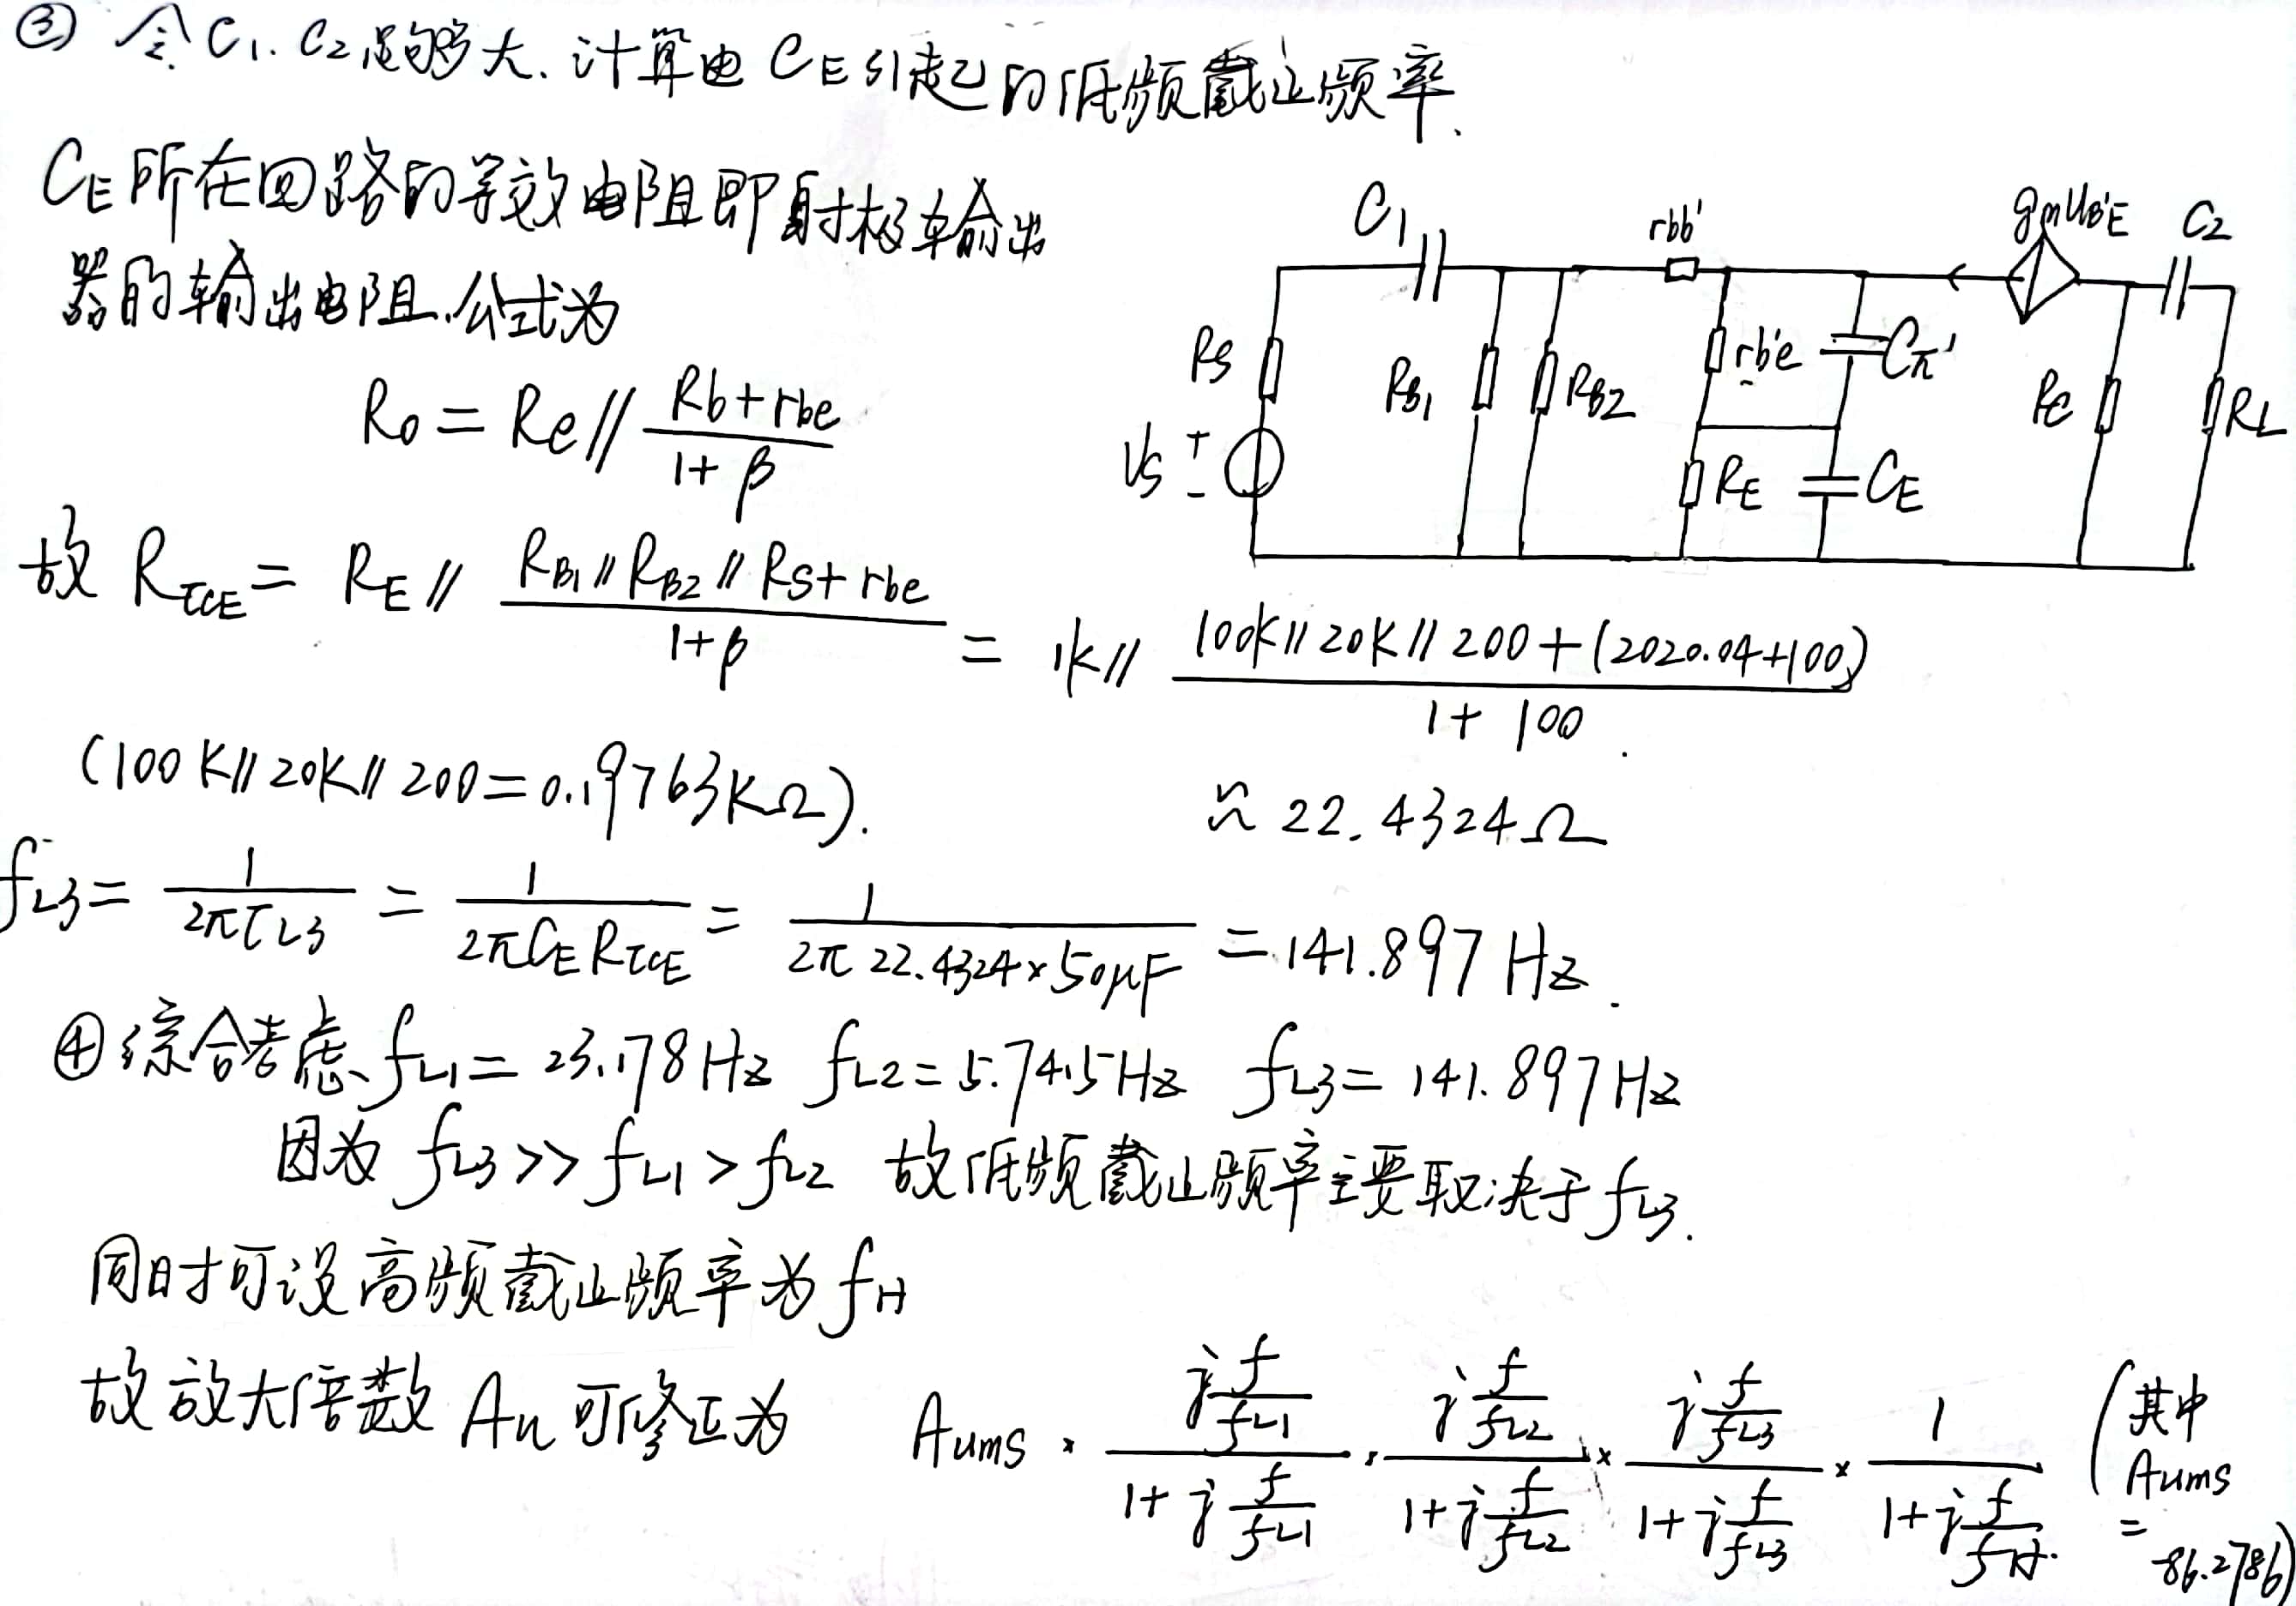 ③ 令C₁.C₂足够大.计算由CE引起的低频截止频率.
CE所在回路的等效电阻即射极输出
器的输出电阻.公式为
Ro = Re // (Rb+rbe)/(1+β)
C₁ rbb' gmUB'E C₂
Rs RB₁ RB₂ rb'e Cπ' Rc RL
Vs + - RE CE
故 RτCE = RE // (RB₁//RB₂//RS+rbe)/(1+β) = 1k// (100K//20K//200+(2020.04+100))/(1+100)
(100K//20K//200=0.19763KΩ). ≈ 22.4324Ω
fL3 = 1/(2πτL3) = 1/(2πCE RτCE) = 1/(2π 22.4324×50μF) = 141.897 Hz.
④综合考虑、fL1 = 23.178Hz fL2 = 5.745Hz fL3 = 141.897Hz
因为 fL3 >> fL1 > fL2 故低频截止频率主要取决于fL3.
同时可设高频截止频率为fH
故放大倍数Au可修正为 Aums · (j f/fL1)/(1+j f/fL1) · (j f/fL2)/(1+j f/fL2) × (j f/fL3)/(1+j f/fL3) × 1/(1+j f/fH) (其中 Aums = -86.2786)